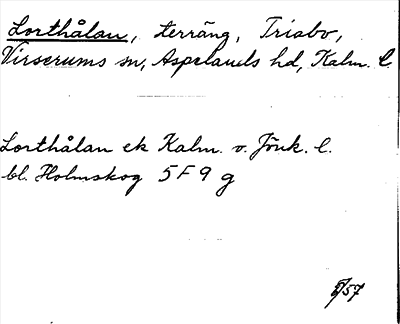 Lorthålan, terräng, Triabo,
Virserums sn, Aspelands hd, Kalm. l.
Lorthålan ek Kalm. v. Jönk. l.
bl. Holmskog 5 F 9 g
/57